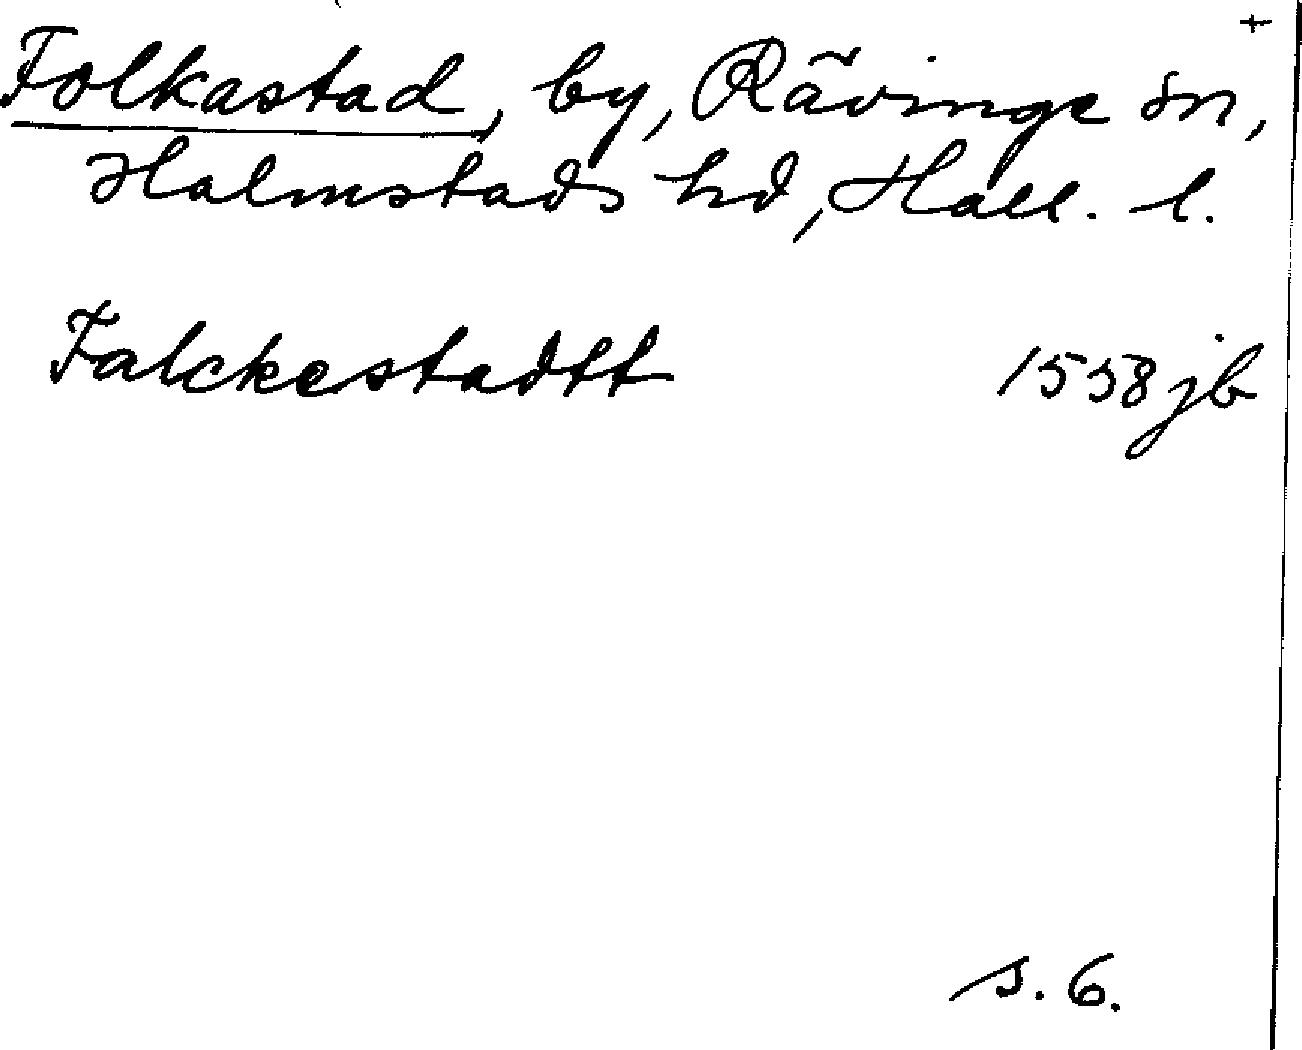 +
Folkastad, by, Rävinge sn,
Halmstads hd, Hall. l.
Falckestadtt 1558 jb
s. 6.